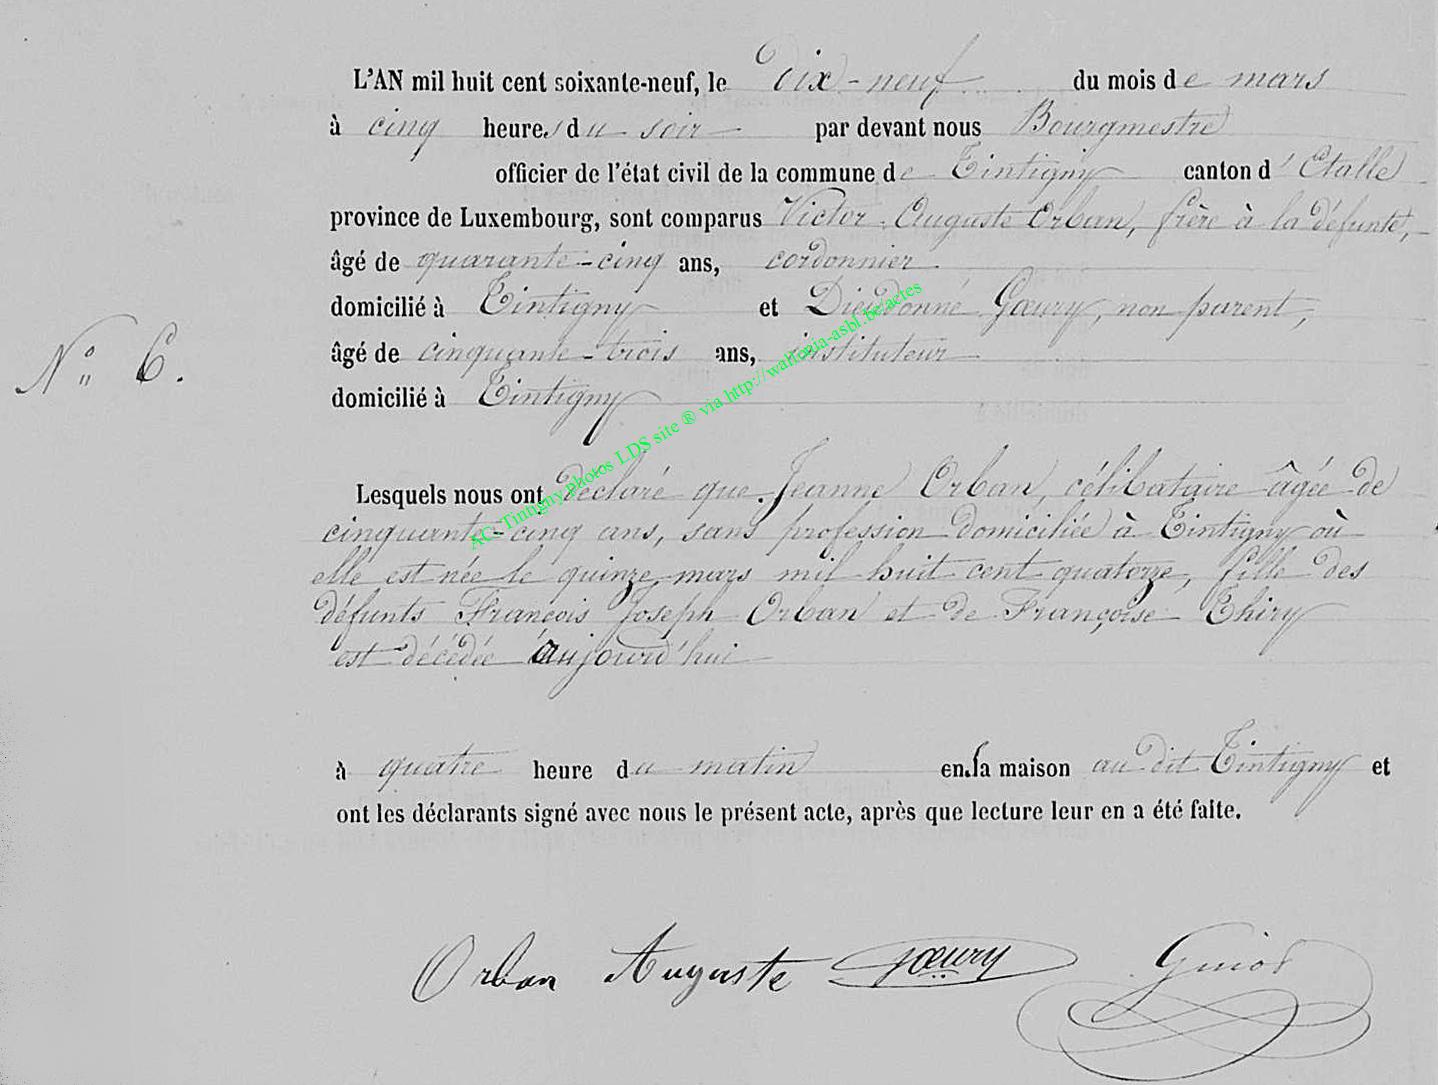 L'AN mil huit cent soixante-neuf, le Dix-neuf du mois de mars
à cinq heures du soir par devant nous Bourgmestre
officier de l'état civil de la commune de Tintigny canton d'Etalle
province de Luxembourg, sont comparus Victor Auguste Orban, frère à la défunte,
âgé de quarante-cinq ans, cordonnier
domicilié à Tintigny et Dieudonné Gœury, non parent,
N° 6.
âgé de cinquante-trois ans, instituteur
domicilié à Tintigny
AC. Tintigny photos LDS site ® via http://wallonia-asbl.be/actes
Lesquels nous ont déclaré que Jeanne Orban, célibataire âgée de
cinquante-cinq ans, sans profession domiciliée à Tintigny où
elle est née le quinze mars mil huit cent quatorze, fille des
défunts François Joseph Orban et de Françoise Thiry
est décédée aujourd'hui
à quatre heure du matin en sa maison au dit Tintigny et
ont les déclarants signé avec nous le présent acte, après que lecture leur en a été faite.
Orban Auguste Gœury Guiot